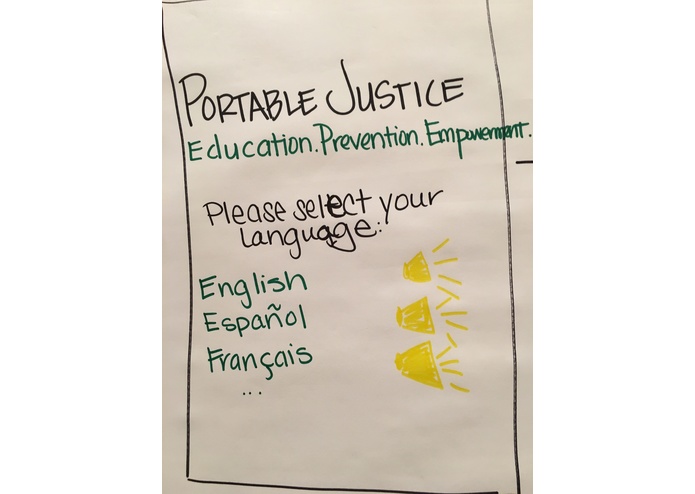 PORTABLE JUSTICE
Education.Prevention.Empowerment.
Please select your
language:
English
Español
Français
...